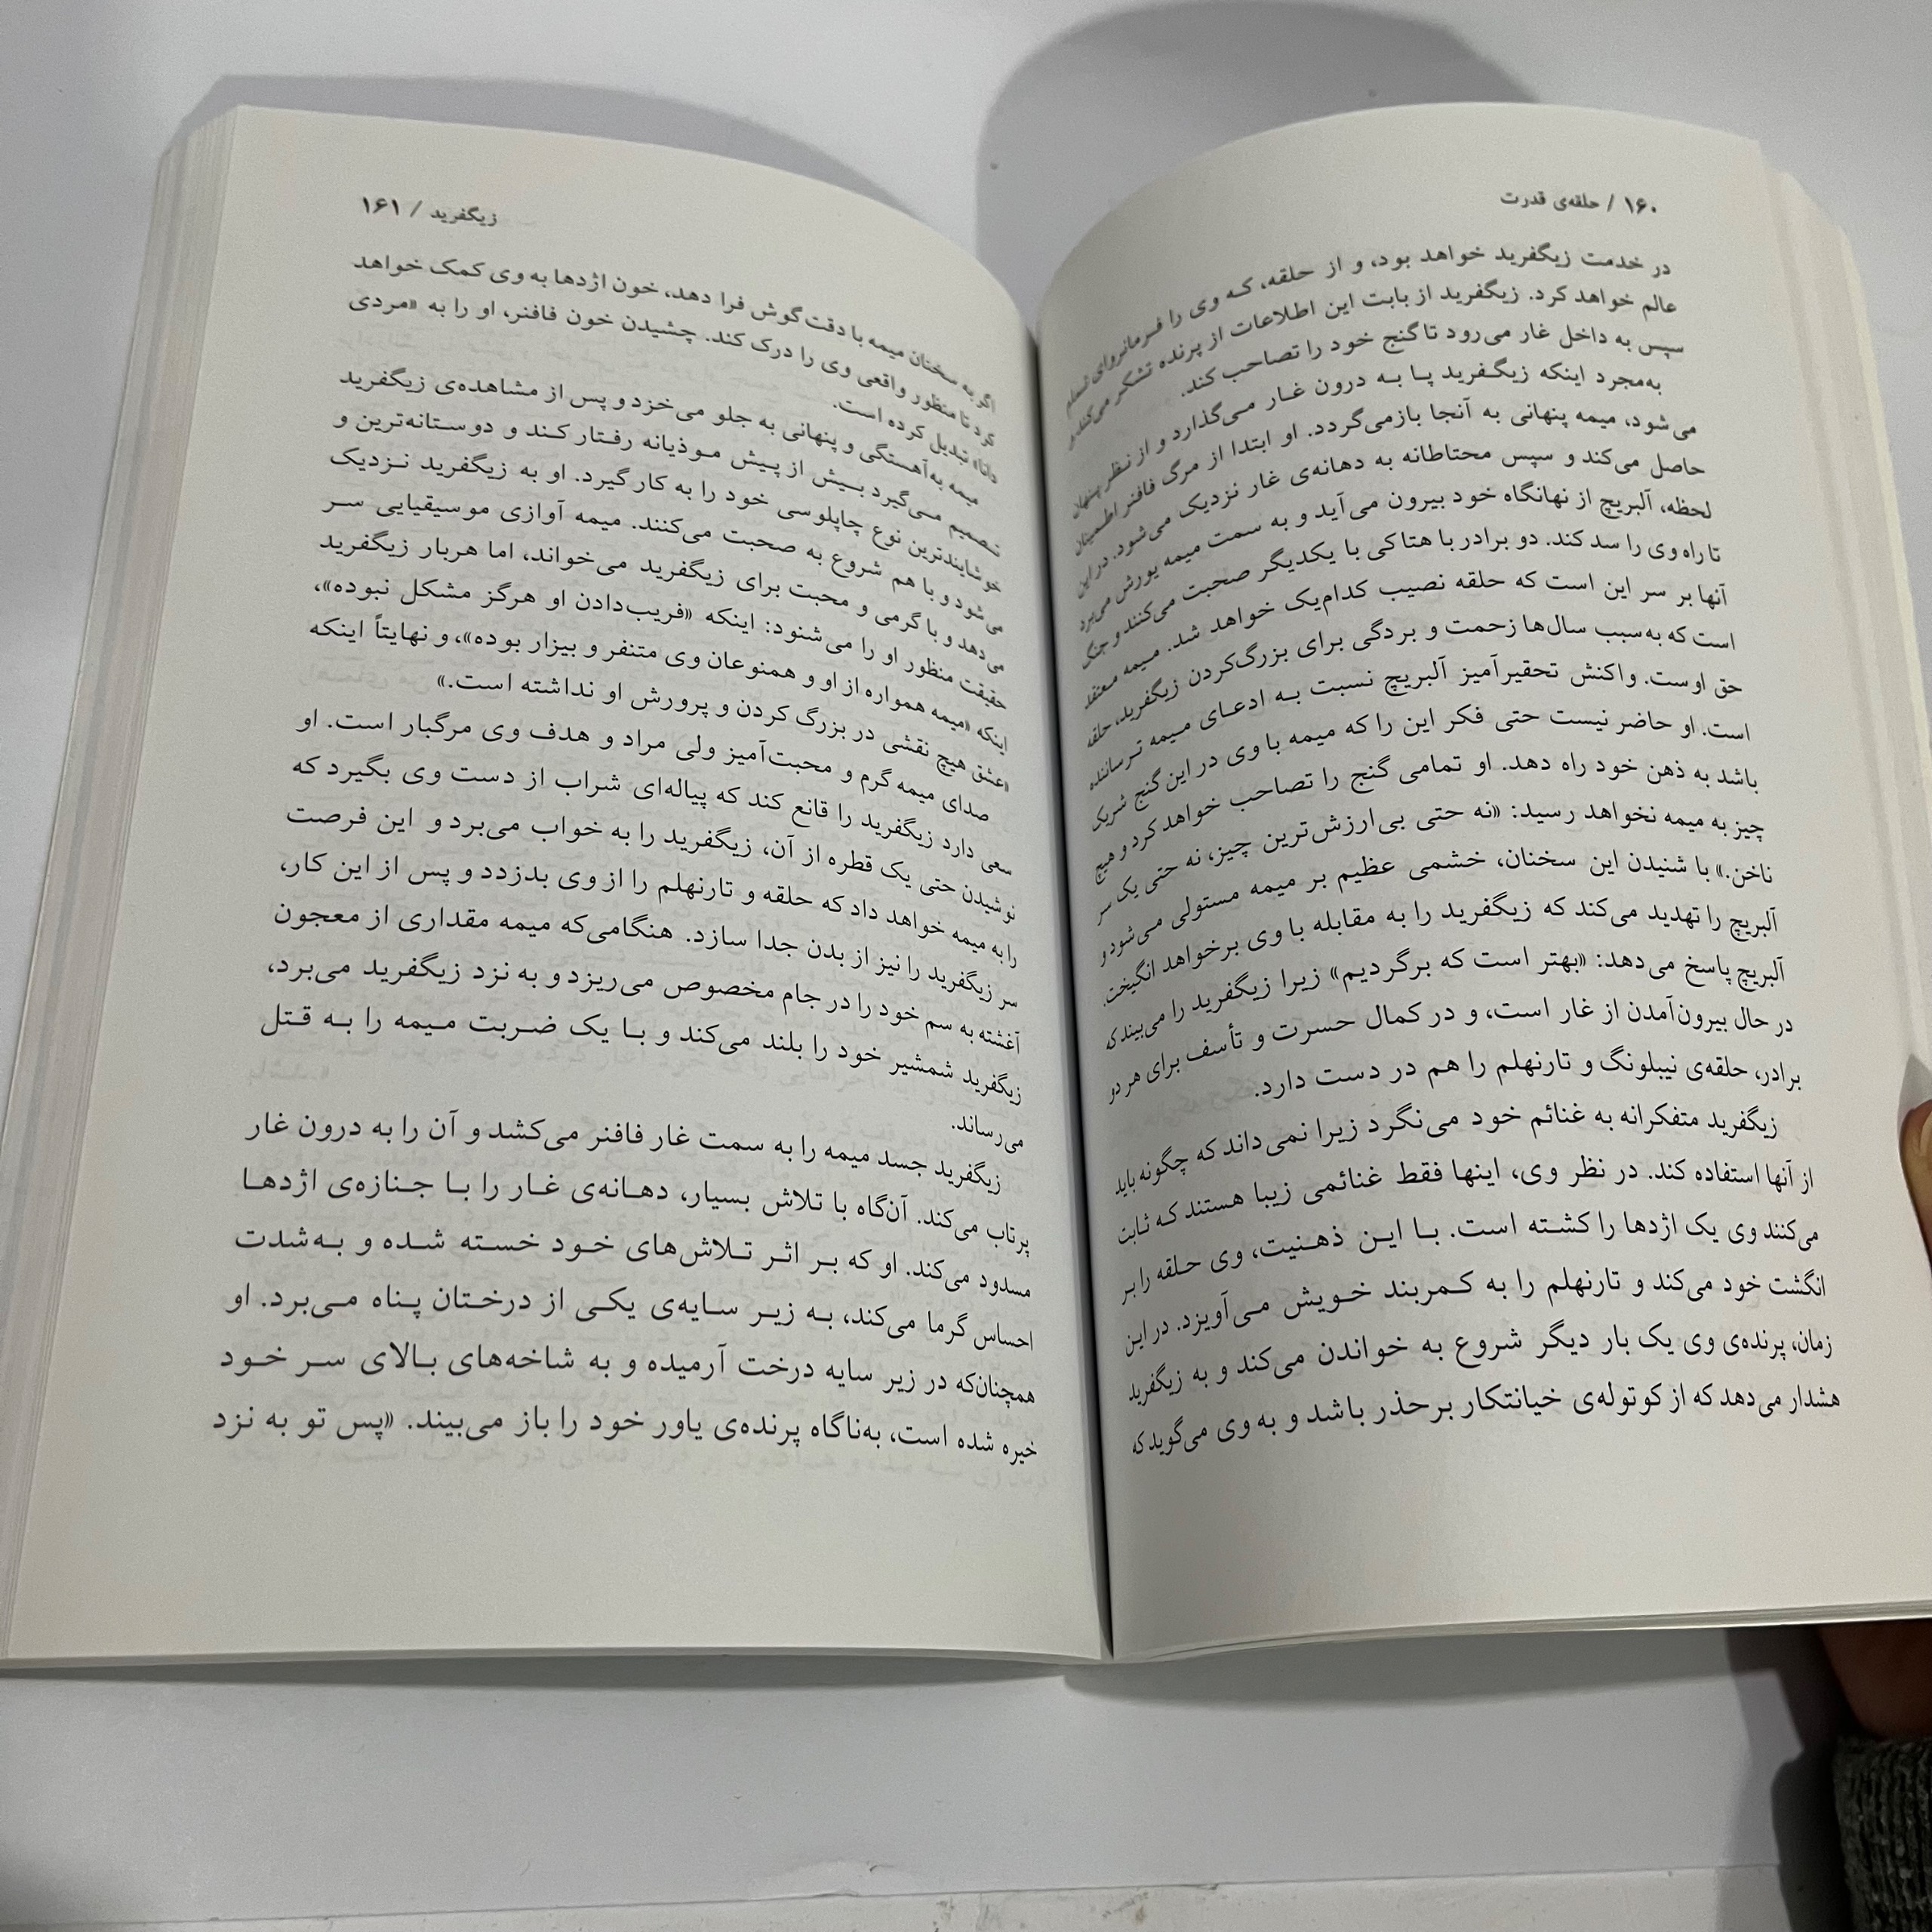 ۱۶۰ / حلقه‌ی قدرت
در خدمت زیگفرید خواهد بود، و از حلقه، که وی را فرمانروای تمام
عالم خواهد کرد. زیگفرید از بابت این اطلاعات از پرنده تشکر می‌کند و
سپس به داخل غار می‌رود تا گنج خود را تصاحب کند.
به‌مجرد اینکه زیگفرید پا به درون غار می‌گذارد و از نظر پنهان
می‌شود، میمه پنهانی به آنجا بازمی‌گردد. او ابتدا از مرگ فافنر اطمینان
حاصل می‌کند و سپس محتاطانه به دهانه‌ی غار نزدیک می‌شود. در این
لحظه، آلبریچ از نهانگاه خود بیرون می‌آید و به سمت میمه یورش می‌برد
تا راه وی را سد کند. دو برادر با هتاکی با یکدیگر صحبت می‌کنند و جنگ
آنها بر سر این است که حلقه نصیب کدام‌یک خواهد شد. میمه معتقد
است که به‌سبب سال‌ها زحمت و بردگی برای بزرگ‌کردن زیگفرید، حلقه
حق اوست. واکنش تحقیرآمیز آلبریچ نسبت به ادعای میمه ترساننده
است. او حاضر نیست حتی فکر این را که میمه با وی در این گنج شریک
باشد به ذهن خود راه دهد. او تمامی گنج را تصاحب خواهد کرد و هیچ
چیز به میمه نخواهد رسید: «نه حتی بی‌ارزش‌ترین چیز، نه حتی یک سر
ناخن.» با شنیدن این سخنان، خشمی عظیم بر میمه مستولی می‌شود و
آلبریچ را تهدید می‌کند که زیگفرید را به مقابله با وی برخواهد انگیخت.
آلبریچ پاسخ می‌دهد: «بهتر است که برگردیم» زیرا زیگفرید را می‌بیند که
در حال بیرون‌آمدن از غار است، و در کمال حسرت و تأسف برای هر دو
برادر، حلقه‌ی نیبلونگ و تارنهلم را هم در دست دارد.
زیگفرید متفکرانه به غنائم خود می‌نگرد زیرا نمی‌داند که چگونه باید
از آنها استفاده کند. در نظر وی، اینها فقط غنائمی زیبا هستند که ثابت
می‌کنند وی یک اژدها را کشته است. با این ذهنیت، وی حلقه را بر
انگشت خود می‌کند و تارنهلم را به کمربند خویش می‌آویزد. در این
زمان، پرنده‌ی وی یک بار دیگر شروع به خواندن می‌کند و به زیگفرید
هشدار می‌دهد که از کوتوله‌ی خیانتکار برحذر باشد و به وی می‌گوید که
زیگفرید / ۱۶۱
اگر به سخنان میمه با دقت گوش فرا دهد، خون اژدها به وی کمک خواهد
کرد تا منظور واقعی وی را درک کند. چشیدن خون فافنر، او را به «مردی
دانا» تبدیل کرده است.
میمه به‌آهستگی و پنهانی به جلو می‌خزد و پس از مشاهده‌ی زیگفرید
تصمیم می‌گیرد بیش از پیش موذیانه رفتار کند و دوستانه‌ترین و
خوشایندترین نوع چاپلوسی خود را به کار گیرد. او به زیگفرید نزدیک
می‌شود و با هم شروع به صحبت می‌کنند. میمه آوازی موسیقیایی سر
می‌دهد و با گرمی و محبت برای زیگفرید می‌خواند، اما هربار زیگفرید
حقیقت منظور او را می‌شنود: اینکه «فریب‌دادن او هرگز مشکل نبوده»،
اینکه «میمه همواره از او و همنوعان وی متنفر و بیزار بوده»، و نهایتاً اینکه
«عشق هیچ نقشی در بزرگ کردن و پرورش او نداشته است.»
صدای میمه گرم و محبت‌آمیز ولی مراد و هدف وی مرگبار است. او
سعی دارد زیگفرید را قانع کند که پیاله‌ای شراب از دست وی بگیرد که
نوشیدن حتی یک قطره از آن، زیگفرید را به خواب می‌برد و این فرصت
را به میمه خواهد داد که حلقه و تارنهلم را از وی بدزدد و پس از این کار،
سر زیگفرید را نیز از بدن جدا سازد. هنگامی‌که میمه مقداری از معجون
آغشته به سم خود را در جام مخصوص می‌ریزد و به نزد زیگفرید می‌برد،
زیگفرید شمشیر خود را بلند می‌کند و با یک ضربت میمه را به قتل
می‌رساند.
زیگفرید جسد میمه را به سمت غار فافنر می‌کشد و آن را به درون غار
پرتاب می‌کند. آن‌گاه با تلاش بسیار، دهانه‌ی غار را با جنازه‌ی اژدها
مسدود می‌کند. او که بر اثر تلاش‌های خود خسته شده و به‌شدت
احساس گرما می‌کند، به زیر سایه‌ی یکی از درختان پناه می‌برد. او
همچنان‌که در زیر سایه درخت آرمیده و به شاخه‌های بالای سر خود
خیره شده است، به‌ناگاه پرنده‌ی یاور خود را باز می‌بیند. «پس تو به نزد